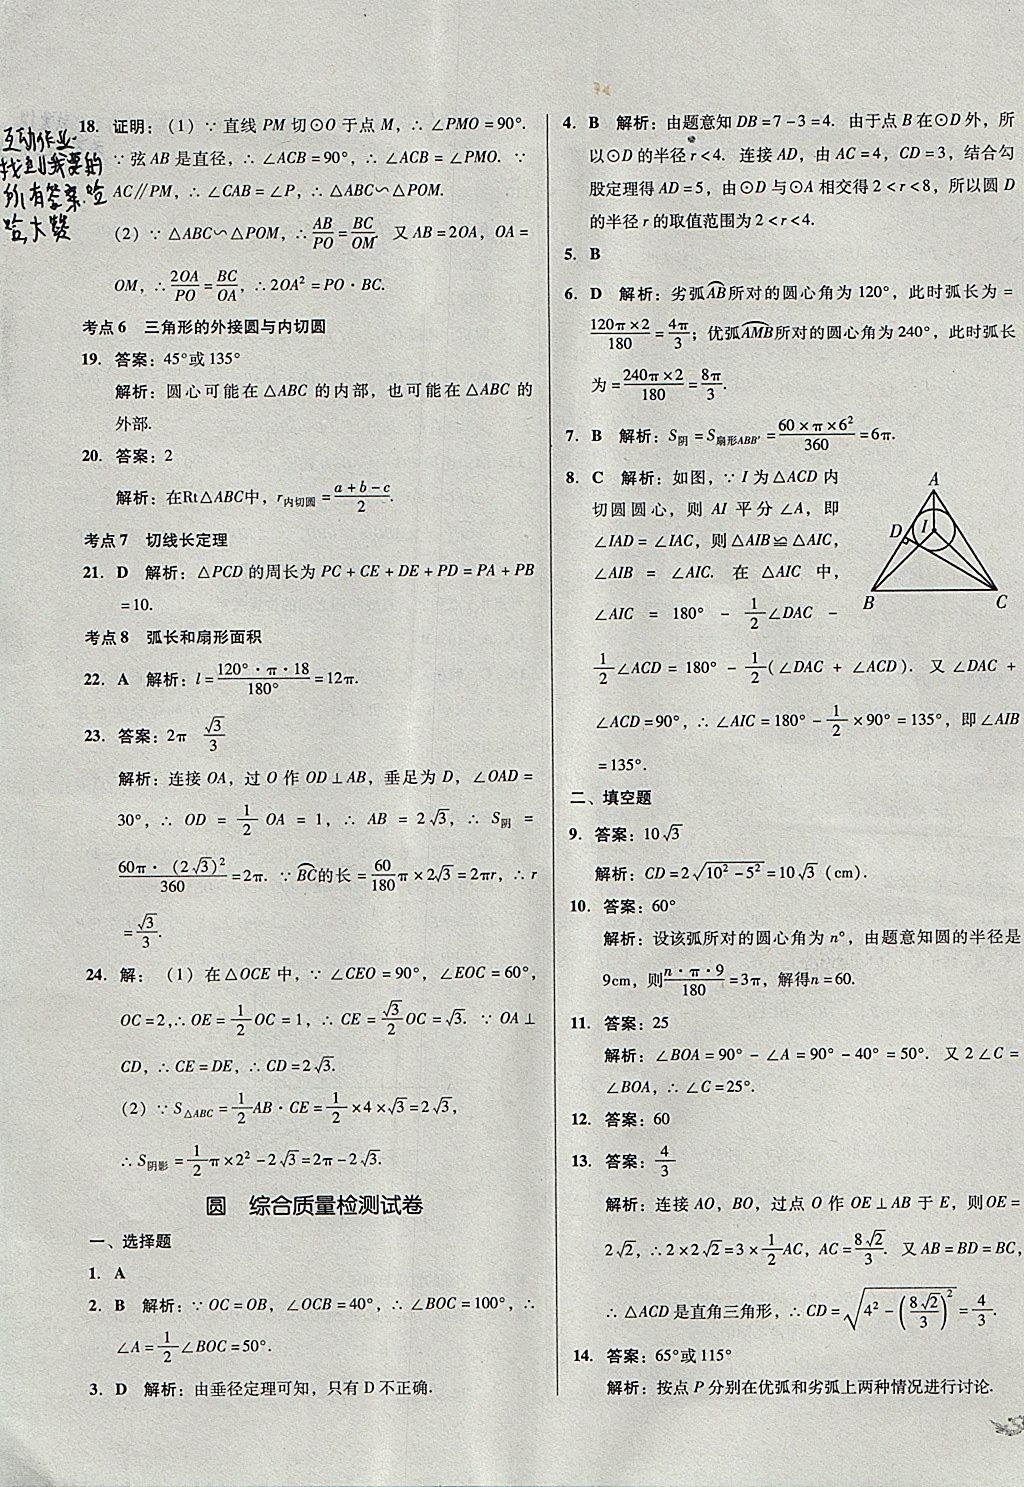 互动作业
找到我要的
所有答案,哈
哈,大赞
18. 证明：(1) ∵ 直线 PM 切⊙O 于点 M, ∴ ∠PMO = 90°.
∵弦 AB 是直径, ∴ ∠ACB = 90°, ∴ ∠ACB = ∠PMO. ∵
AC∥PM, ∴ ∠CAB = ∠P, ∴ △ABC∽△POM.
(2) ∵ △ABC∽△POM, ∴ AB/PO = BC/OM. 又 AB = 2OA, OA =
OM, ∴ 2OA/PO = BC/OA, ∴ 2OA² = PO·BC.
考点 6 三角形的外接圆与内切圆
19. 答案：45°或 135°
解析：圆心可能在△ABC 的内部, 也可能在△ABC 的
外部.
20. 答案：2
解析：在Rt△ABC中, r内切圆 = (a+b-c)/2.
考点 7 切线长定理
21. D 解析：△PCD 的周长为 PC + CE + DE + PD = PA + PB
= 10.
考点 8 弧长和扇形面积
22. A 解析：l = 120°·π·18/180° = 12π.
23. 答案：2π √3/3
解析：连接 OA, 过 O 作 OD⊥AB, 垂足为 D, ∠OAD =
30°, ∴ OD = 1/2 OA = 1, ∴ AB = 2√3, ∴ S阴 =
60π·(2√3)²/360 = 2π. ∵ BC⌒的长 = 60/180 π × 2√3 = 2πr, ∴ r
= √3/3.
24. 解：(1) 在△OCE 中, ∵ ∠CEO = 90°, ∠EOC = 60°,
OC = 2, ∴ OE = 1/2 OC = 1, ∴ CE = √3/2 OC = √3. ∵ OA⊥
CD, ∴ CE = DE, ∴ CD = 2√3.
(2) ∵ S△ABC = 1/2 AB·CE = 1/2 × 4 × √3 = 2√3,
∴ S阴影 = 1/2 π × 2² - 2√3 = 2π - 2√3.
圆 综合质量检测试卷
一、选择题
1. A
2. B 解析：∵ OC = OB, ∠OCB = 40°, ∴ ∠BOC = 100°, ∴
∠A = 1/2 ∠BOC = 50°.
3. D 解析：由垂径定理可知, 只有 D 不正确.
4. B 解析：由题意知 DB = 7 - 3 = 4. 由于点 B 在⊙D 外, 所
以⊙D 的半径 r < 4. 连接 AD, 由 AC = 4, CD = 3, 结合勾
股定理得 AD = 5, 由⊙D 与⊙A 相交得 2 < r < 8, 所以圆 D
的半径 r 的取值范围为 2 < r < 4.
5. B
6. D 解析：劣弧AB⌒所对的圆心角为 120°, 此时弧长为 =
120π×2/180 = 4π/3; 优弧AMB⌒所对的圆心角为 240°, 此时弧长
为 = 240π×2/180 = 8π/3.
7. B 解析：S阴 = S扇形ABB′ = 60×π×6²/360 = 6π.
8. C 解析：如图, ∵ I 为△ACD 内
切圆圆心, 则 AI 平分∠A, 即
∠IAD = ∠IAC, 则△AIB≌△AIC,
∠AIB = ∠AIC. 在△AIC 中,
∠AIC = 180° - 1/2 ∠DAC -
1/2 ∠ACD = 180° - 1/2 (∠DAC + ∠ACD). 又∠DAC +
∠ACD = 90°, ∴ ∠AIC = 180° - 1/2 × 90° = 135°, 即∠AIB
= 135°.
A
D
I
B
C
二、填空题
9. 答案：10√3
解析：CD = 2√(10² - 5²) = 10√3 (cm).
10. 答案：60°
解析：设该弧所对的圆心角为 n°, 由题意知圆的半径是
9cm, 则 n·π·9/180 = 3π, 解得n = 60.
11. 答案：25
解析：∠BOA = 90° - ∠A = 90° - 40° = 50°. 又 2∠C =
∠BOA, ∴ ∠C = 25°.
12. 答案：60
13. 答案：4/3
解析：连接 AO, BO, 过点 O 作 OE⊥AB 于 E, 则 OE =
2√2, ∴ 2 × 2√2 = 3 × 1/2 AC, AC = 8√2/3. 又 AB = BD = BC,
∴ △ACD 是直角三角形, ∴ CD = √(4² - (8√2/3)²) = 4/3.
14. 答案：65°或 115°
解析：按点 P 分别在优弧和劣弧上两种情况进行讨论.